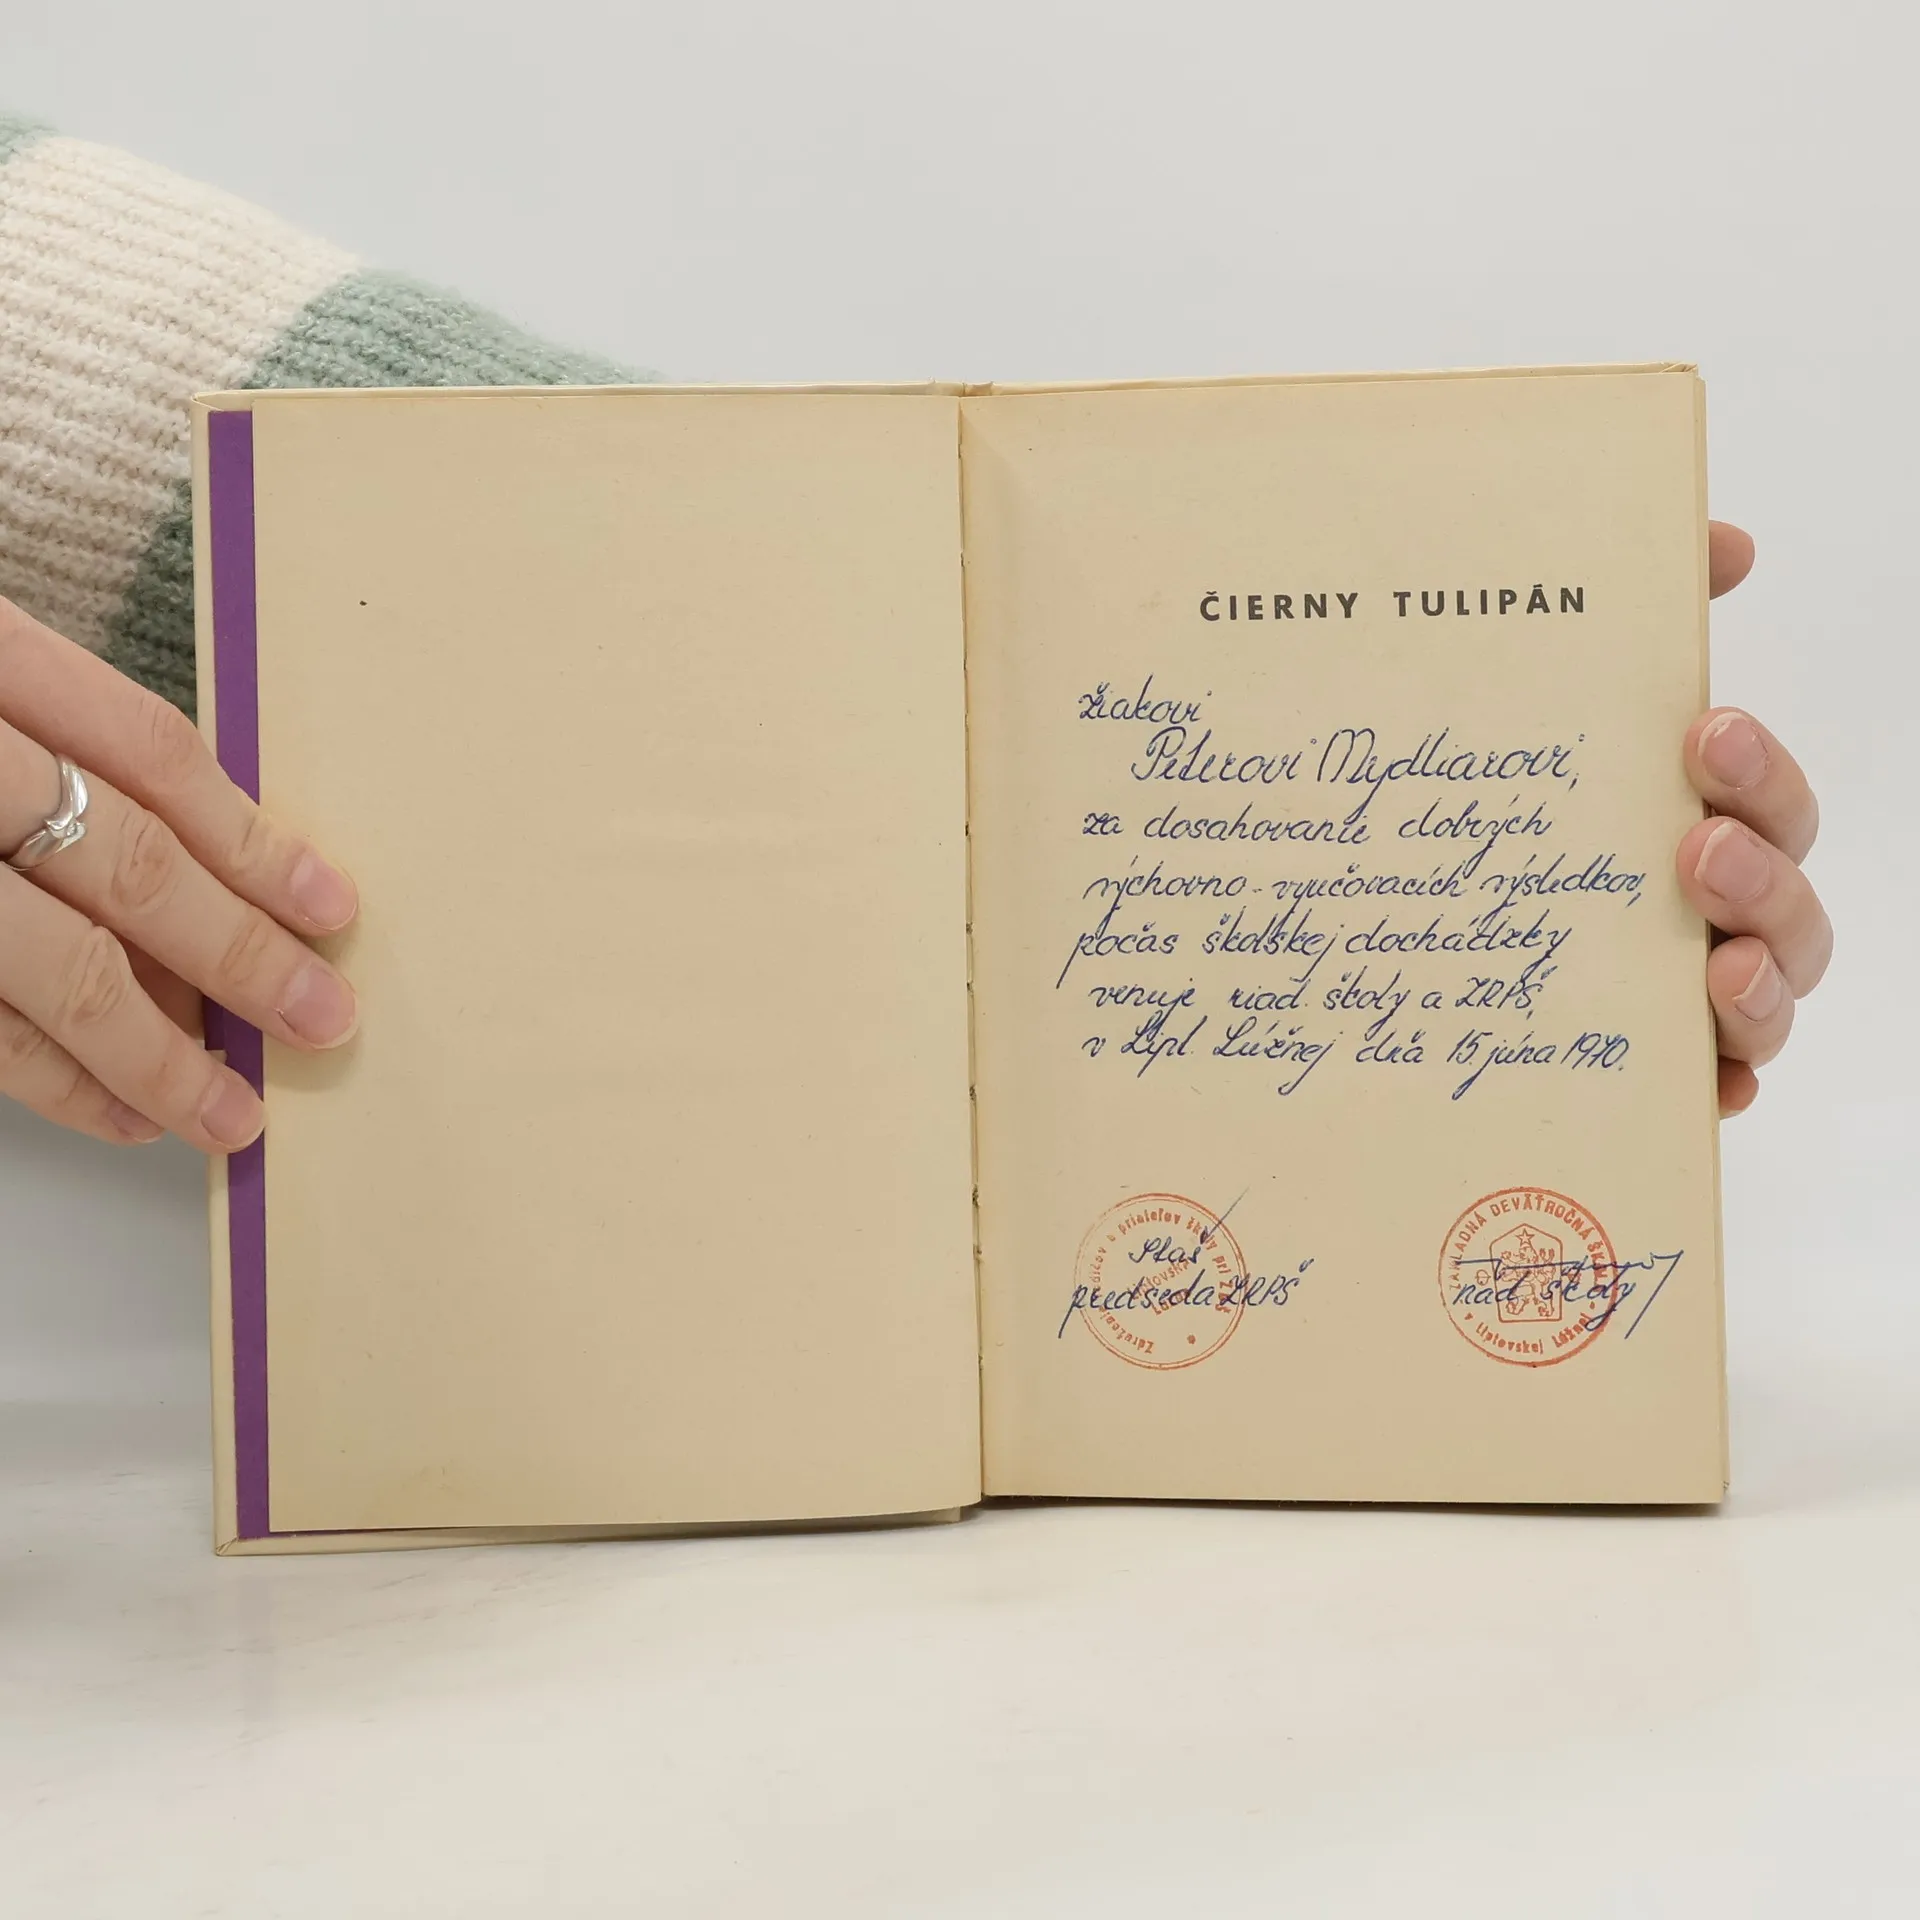 ČIERNY TULIPÁN
žiakovi
Peterovi Mydliarovi,
za dosahovanie dobrých
výchovno-vyučovacích výsledkov,
počas školskej dochádzky
venuje riad. školy a ZRPŠ,
v Lipt. Lúžnej dňa 15. júna 1970.
Združenie rodičov a priateľov školy pri ZDŠ
Liptovská
Staš
predseda ZRPŠ
ZÁKLADNÁ DEVÄŤROČNÁ ŠKOLA
v Liptovskej Lúžnej
riad školy